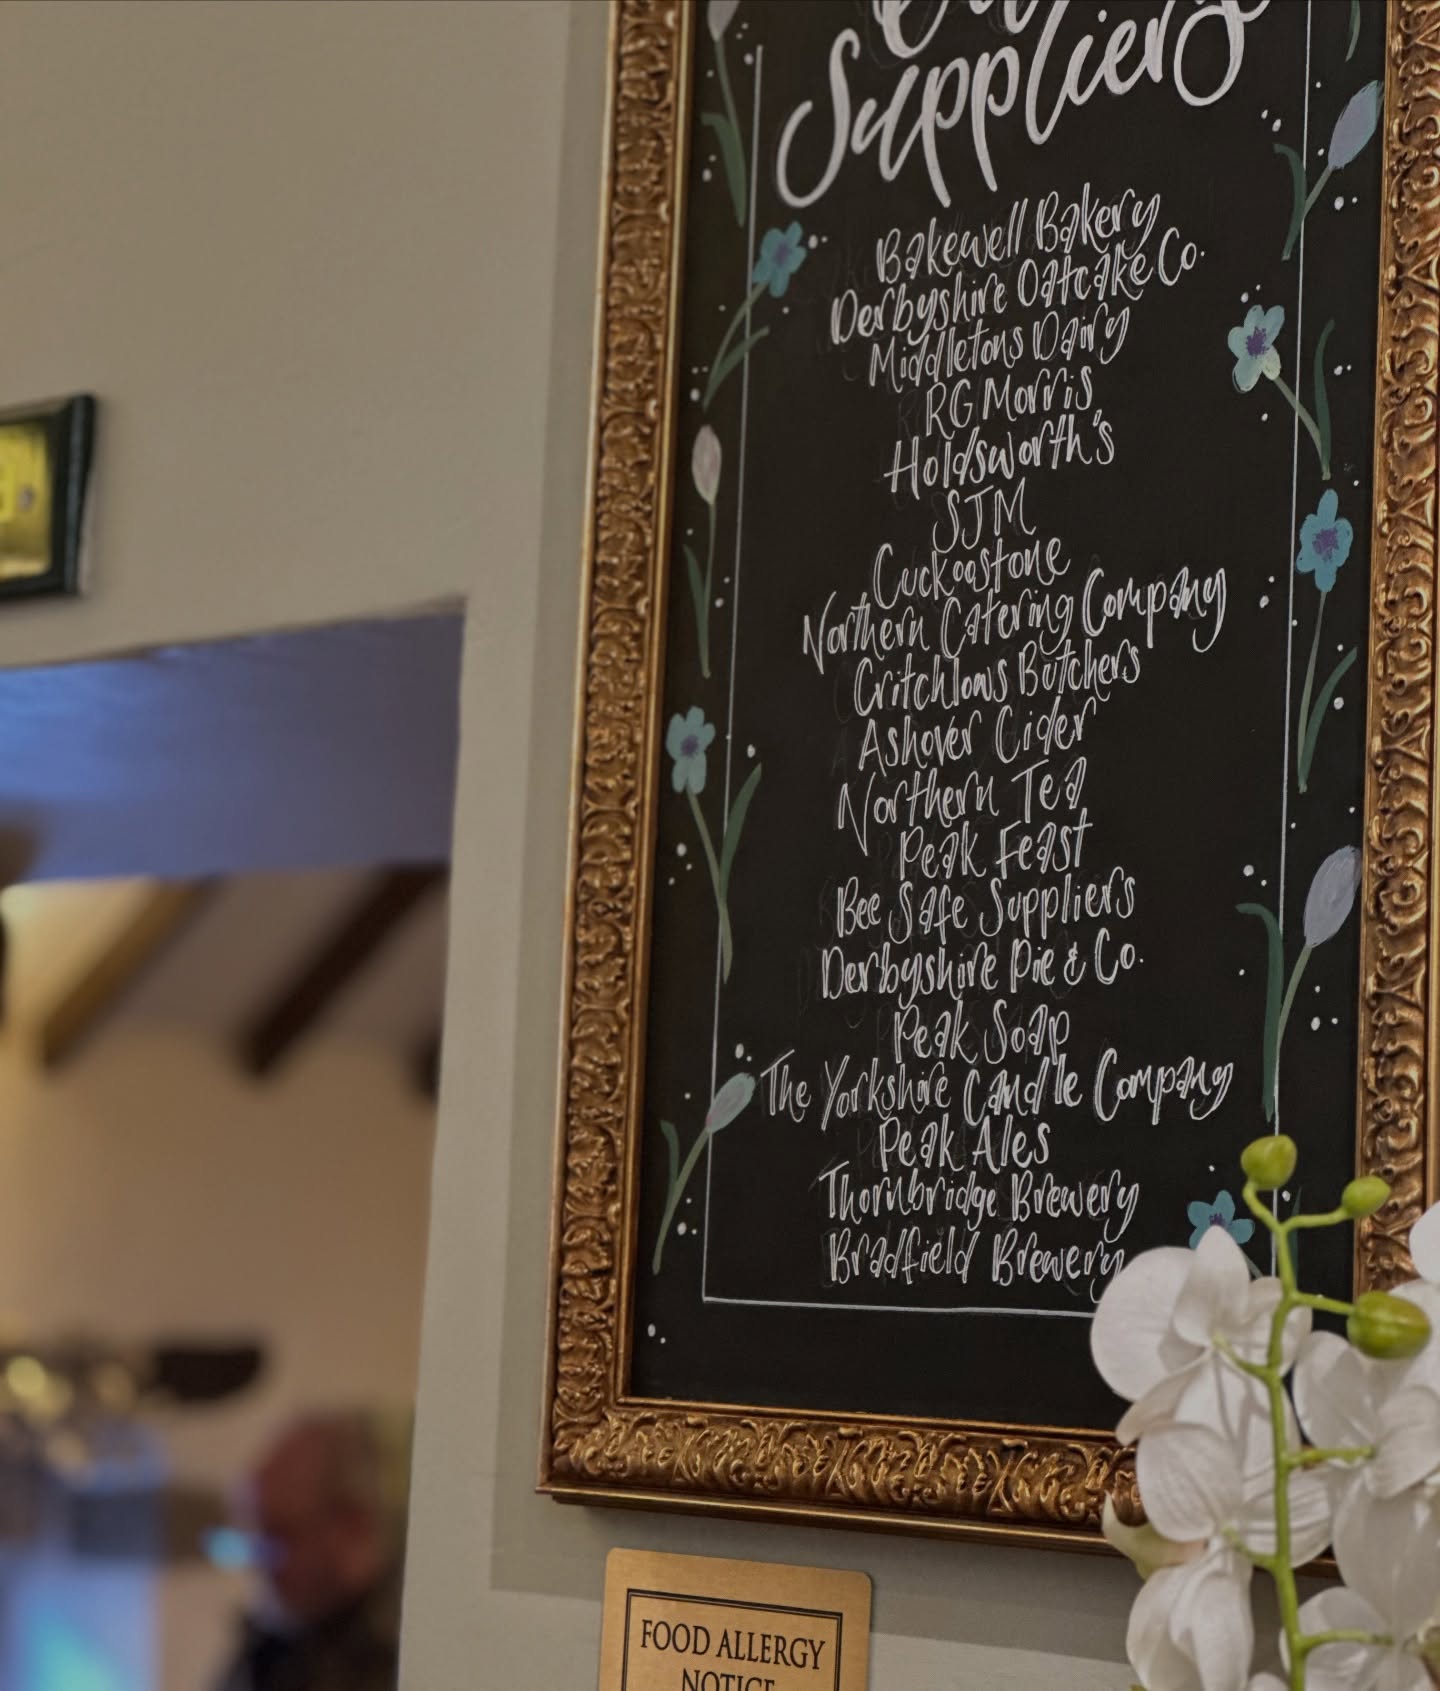 Our
Suppliers
Bakewell Bakery
Derbyshire Oatcake Co.
Middletons Dairy
RG Morris
Holdsworth's
SJM
Cuckoostone
Northern Catering Company
Critchlows Butchers
Ashover Cider
Northern Tea
Peak Feast
Bee Safe Suppliers
Derbyshire Pie & Co.
Peak Soap
The Yorkshire Candle Company
Peak Ales
Thornbridge Brewery
Bradfield Brewery
FOOD ALLERGY
NOTICE